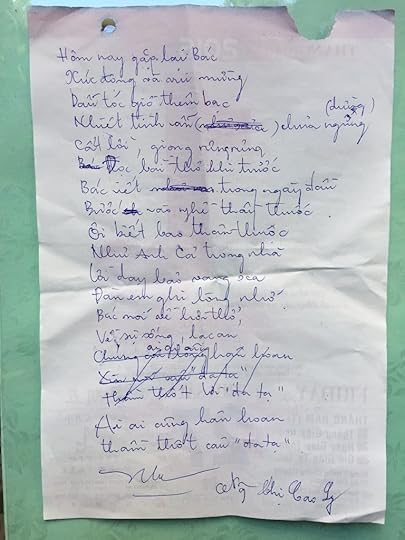 Hôm nay gặp lại Bác
Xúc động và vui mừng
Dẫu tóc giờ thêm bạc
Nhiệt tình vẫn chưa ngừng
(dừng)
Cất lời, giọng rưng rưng
Đọc bài thơ khi trước
Bác viết trong ngày đầu
Bước vào nghề thầy thuốc
Ôi biết bao thân thuộc
Như Anh Cả trong nhà
Lời dạy bảo vang xa
Đàn em ghi lòng nhớ
Bác nói về hơi thở,
Về sự sống, lạc an
hân hoan
"đa tạ"
Thầm thốt là "đa tạ"
Ai ai cũng hân hoan
Thầm thốt câu "đa tạ"